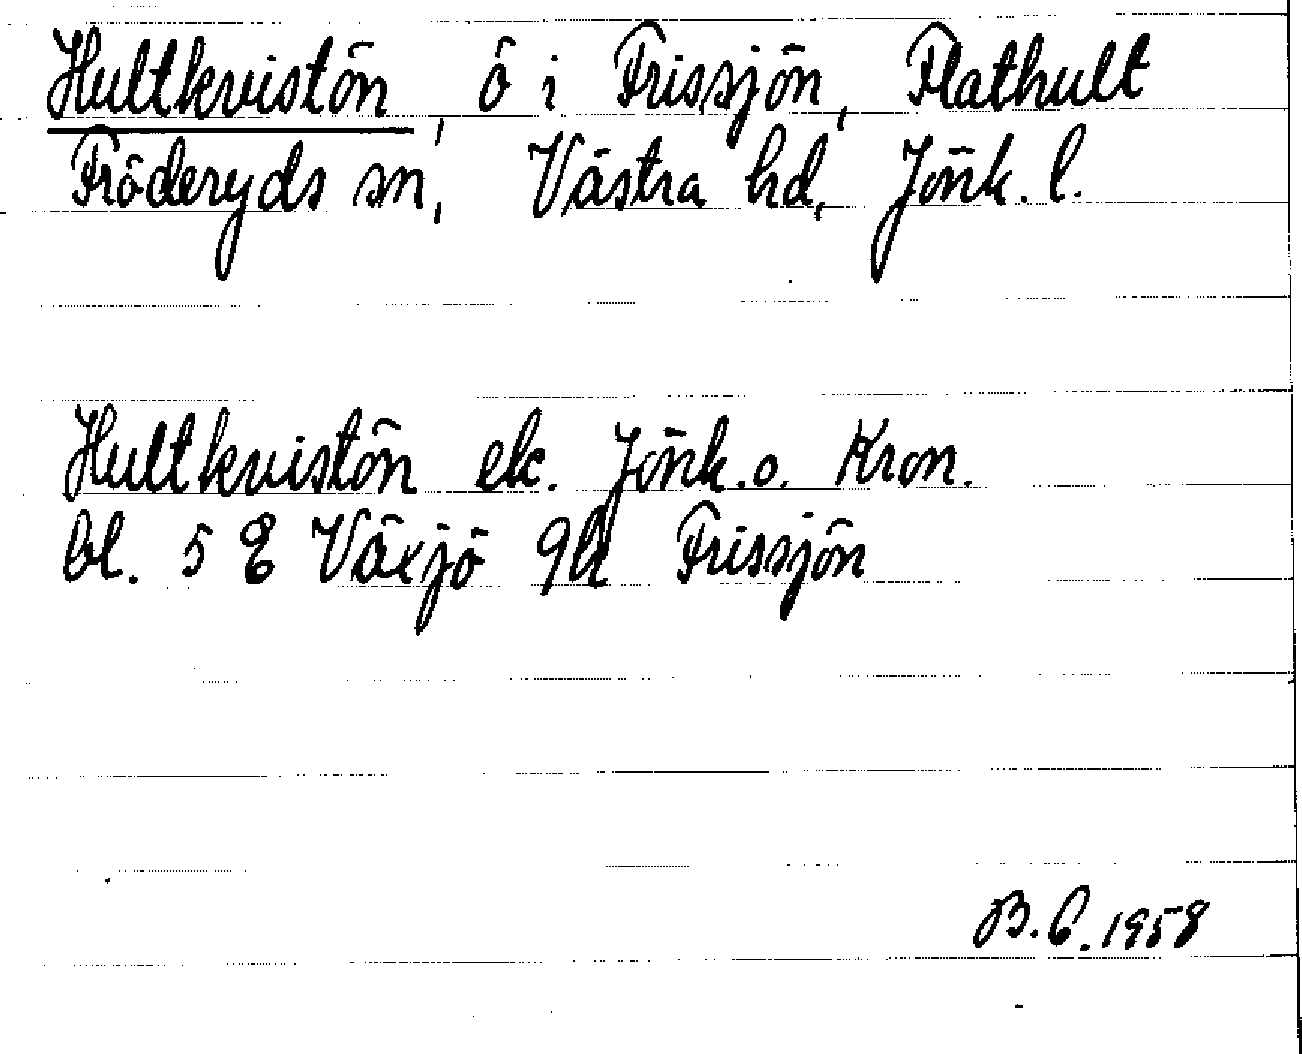 Hultkvistön, ö i Frissjön, Flathult
Fröderyds sn, Västra hd, Jönk. l.
Hultkvistön ek. Jönk. o. Kron.
bl. 5 E Växjö 9h Frissjön
B. C. 1958